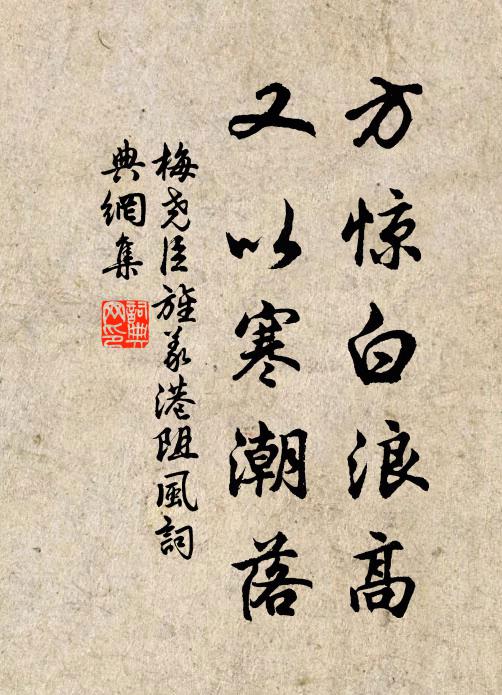 方惊白浪高
又以寒潮落
梅尧臣旌义港阻風詞
典網集
詞典
网印